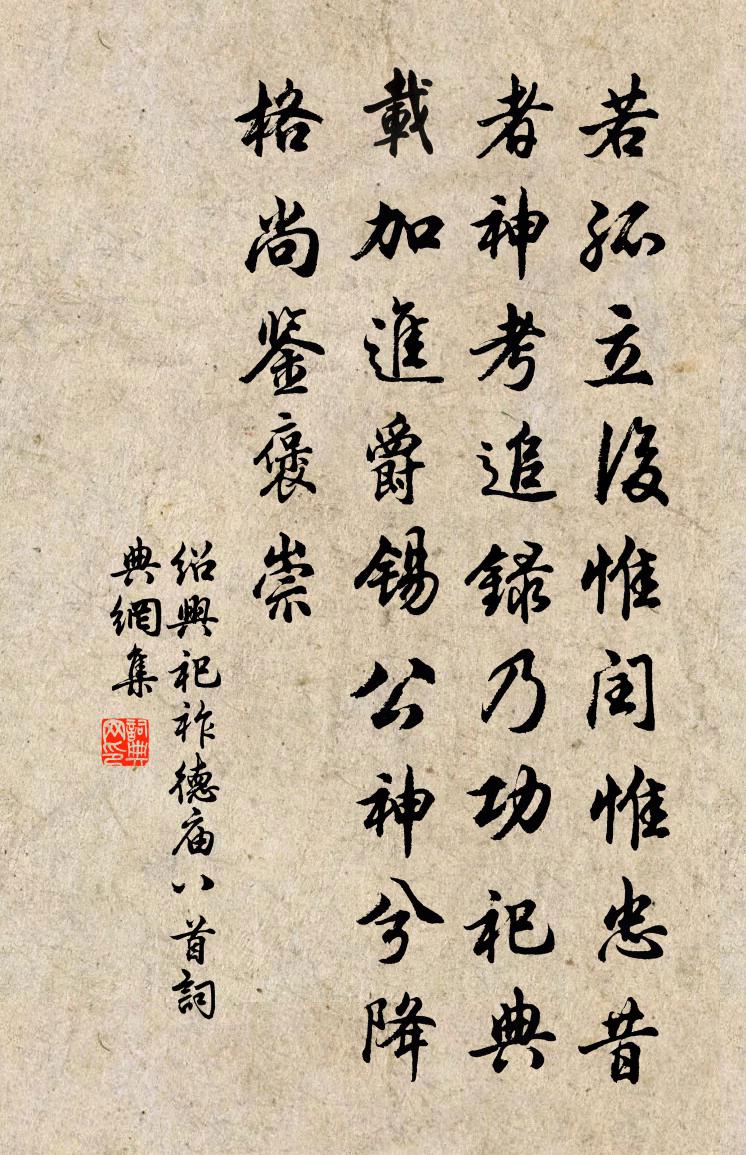 若孤立後惟閏惟忠昔
者神考追錄乃功祀典
載加進爵錫公神兮降
格尚鑒褒崇
绍興祀祚德庙八首詞
典網集
詞典网印